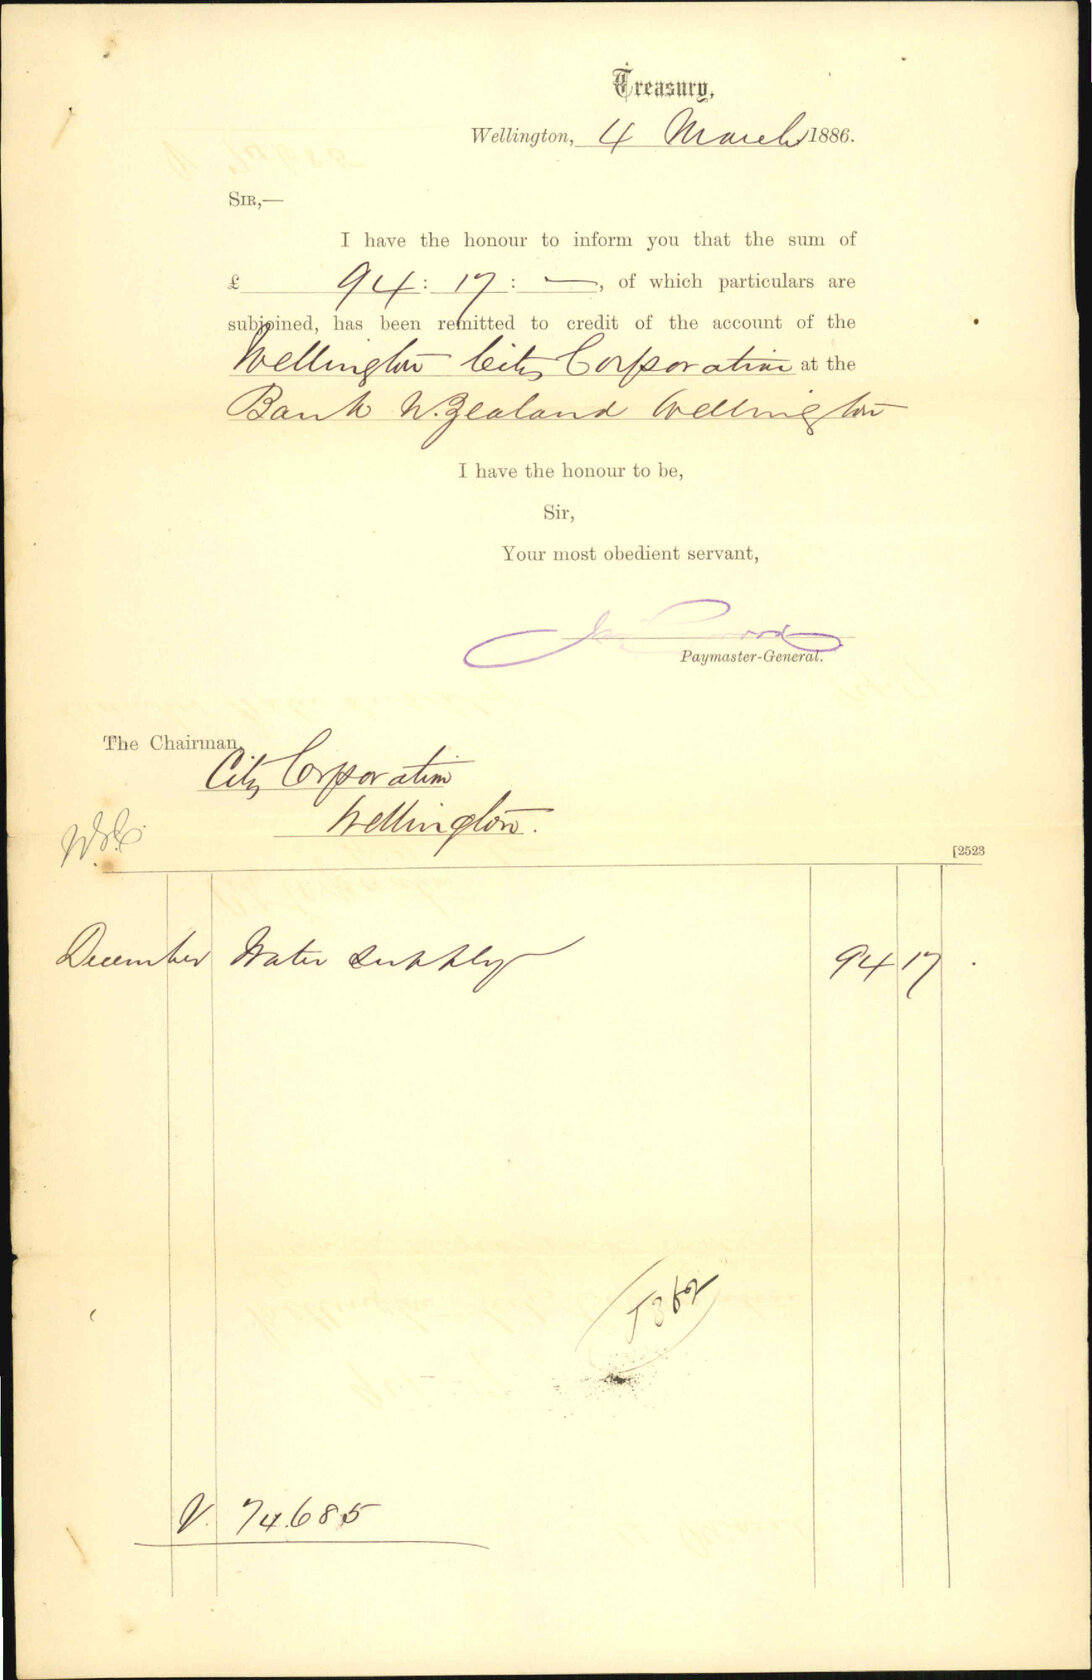 Treasury,
Wellington, 4 March 1886.
SIR,—
I have the honour to inform you that the sum of
£ 94 : 17 : —, of which particulars are
subjoined, has been remitted to credit of the account of the
Wellington City Corporation at the
Bank N. Zealand Wellington
I have the honour to be,
Sir,
Your most obedient servant,
Paymaster-General.
The Chairman,
City Corporation
Wellington.
[2523
December Water supply 94 17 .
V. 74.685